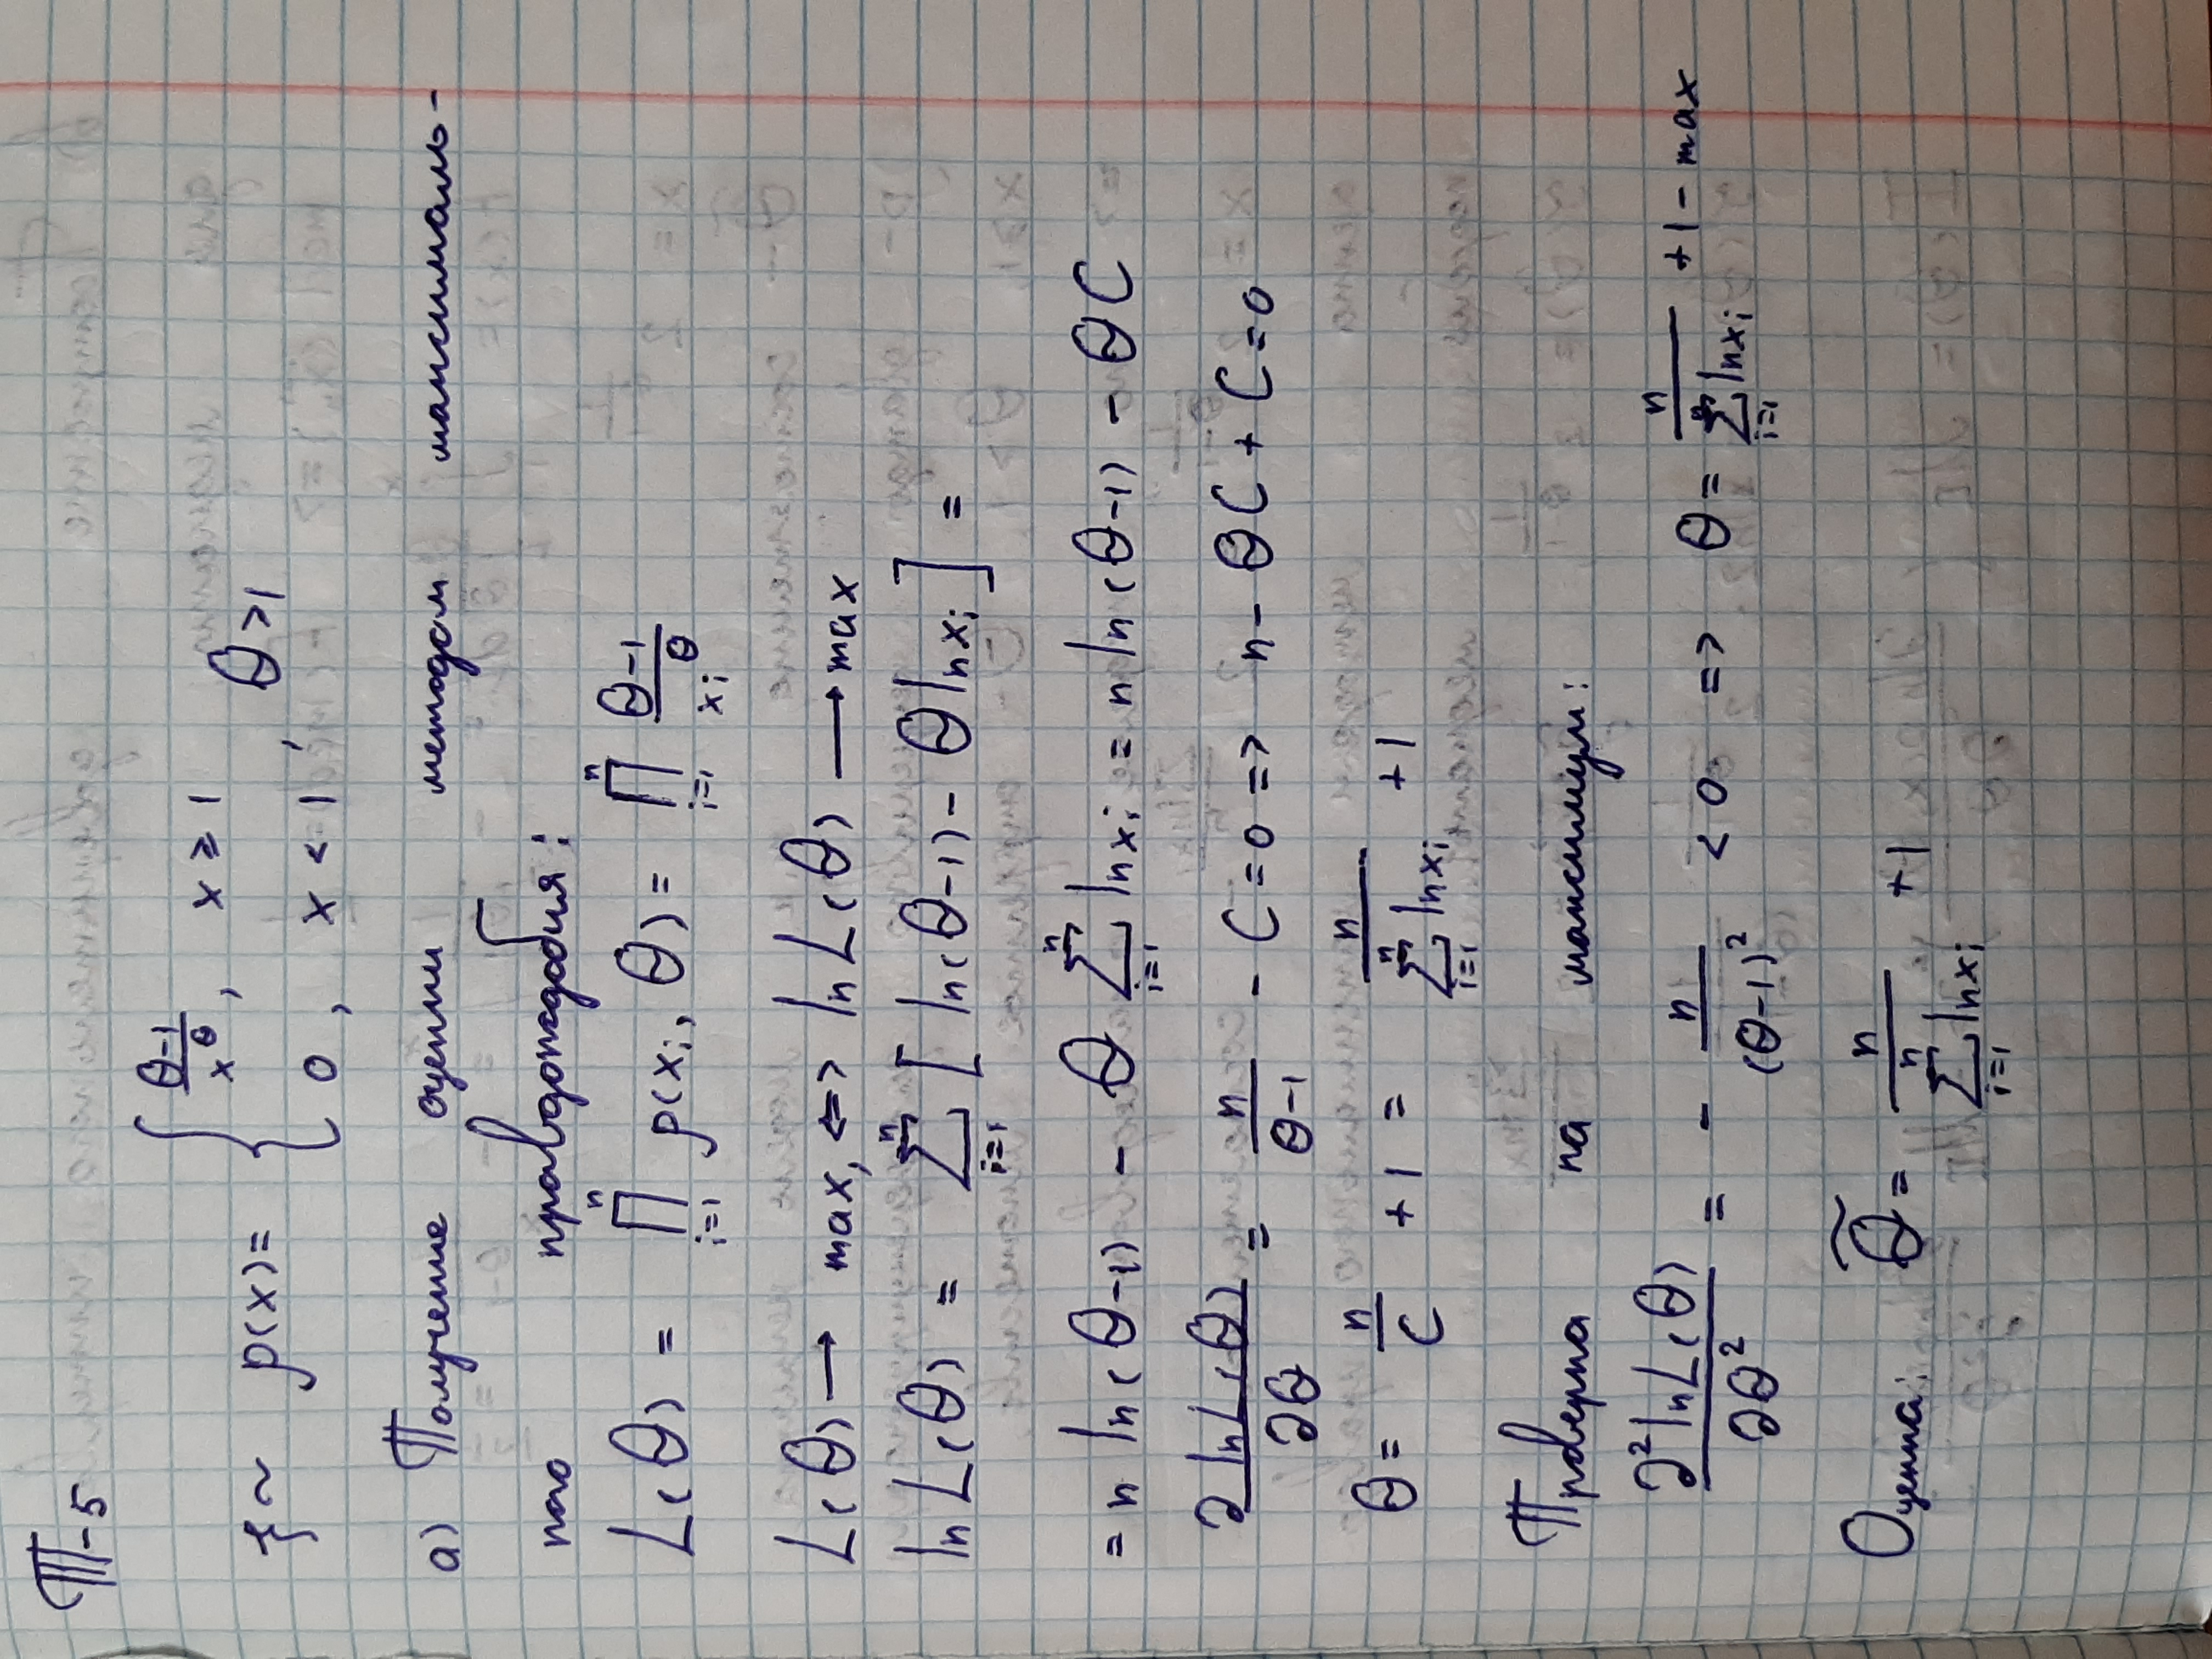 Т-5
ξ ~ p(x) = { (θ-1)/x^θ, x ≥ 1
0, x < 1 , θ > 1
а) Получение оценки методом максималь-
ного правдоподобия:
L(θ) = ∏_{i=1}^{n} p(x_i, θ) = ∏_{i=1}^{n} (θ-1)/x_i^θ
L(θ) → max, <=> ln L(θ) → max
ln L(θ) = ∑_{i=1}^{n} [ ln(θ-1) - θ ln x_i ] =
= n ln(θ-1) - θ ∑_{i=1}^{n} ln x_i = n ln(θ-1) - θC
∂ ln L(θ)/∂θ = n/(θ-1) - C = 0 => n - θC + C = 0
θ = n/C + 1 = n/∑_{i=1}^{n} ln x_i + 1
Проверка на максимум:
∂² ln L(θ)/∂θ² = - n/(θ-1)² < 0 => θ = n/∑_{i=1}^{n} ln x_i + 1 - max
Оценка: θ̃ = n/∑_{i=1}^{n} ln x_i + 1